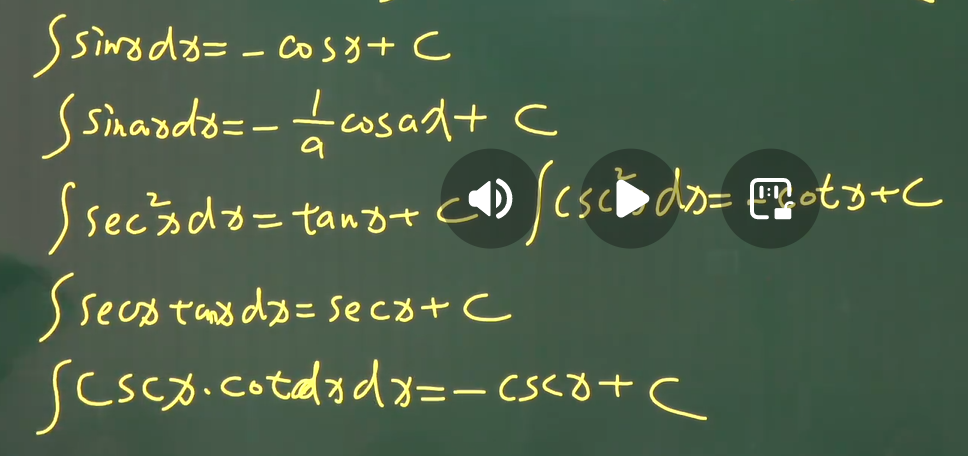 ∫ sinx dx = - cosx + C
∫ sinax dx = - 1/a cosax + C
∫ sec²x dx = tanx + C ∫ csc²x dx = - cotx + C
∫ secx tanx dx = secx + C
∫ cscx · cotdx dx = - cscx + C